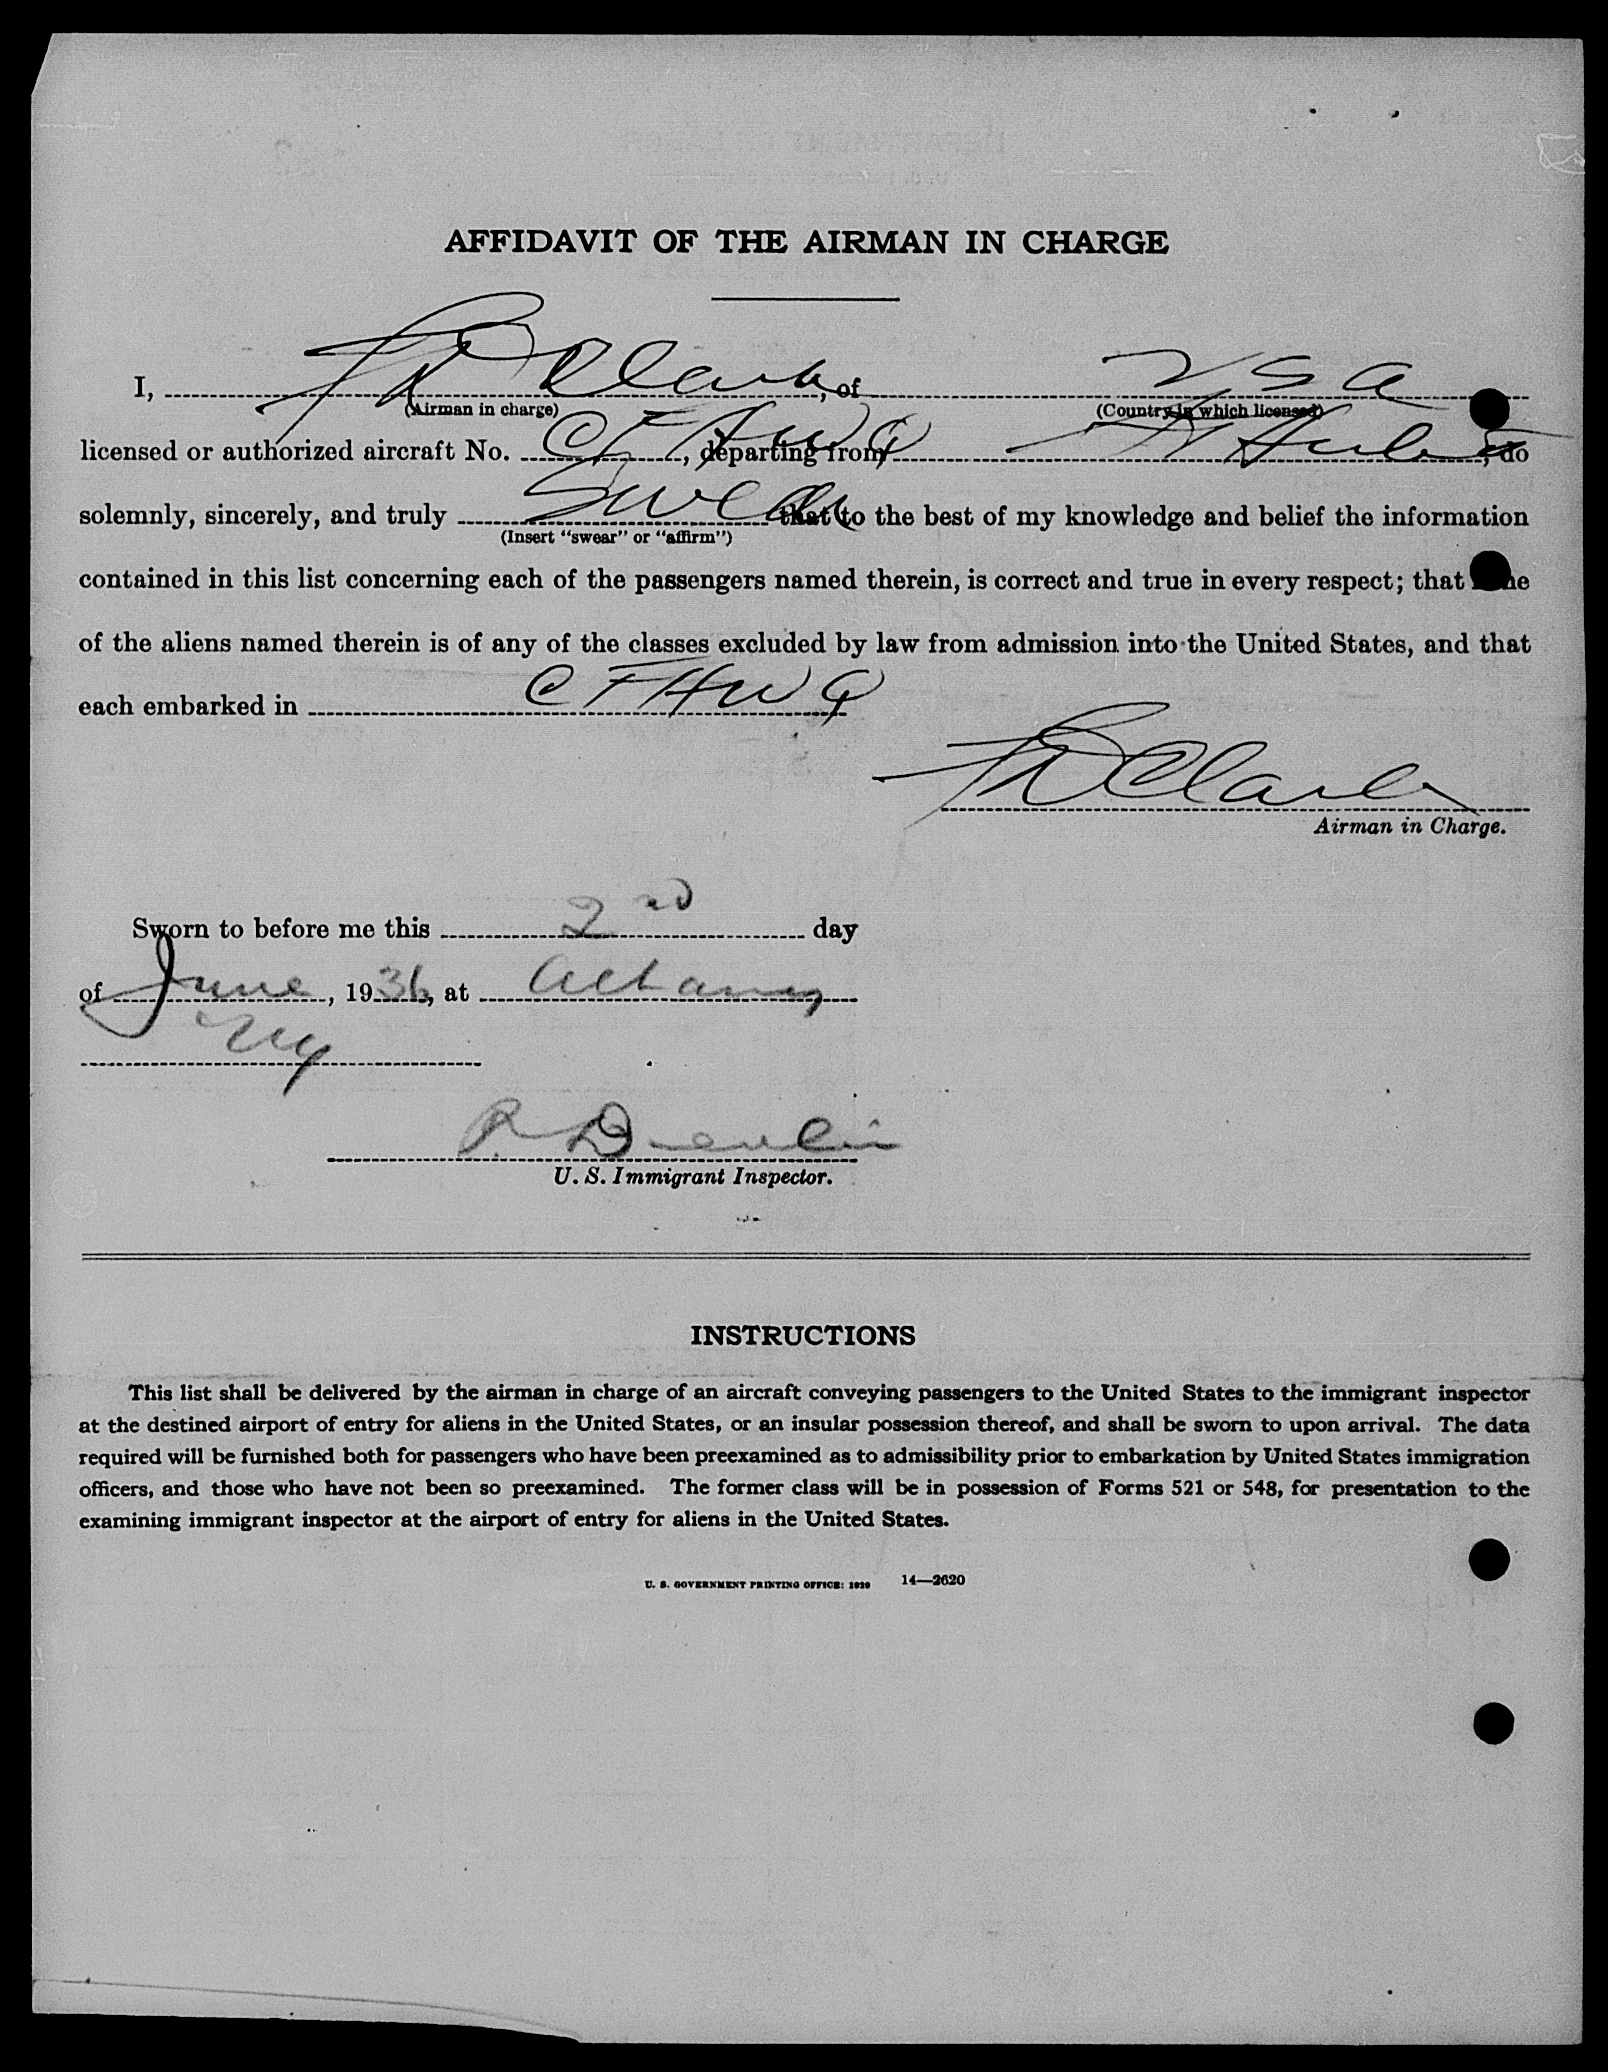 AFFIDAVIT OF THE AIRMAN IN CHARGE
I, Clark, of USA
(Airman in charge) (Country in which licensed)
licensed or authorized aircraft No. CF AWQ, departing from St Hubert, do
solemnly, sincerely, and truly Swear that to the best of my knowledge and belief the information
(Insert "swear" or "affirm")
contained in this list concerning each of the passengers named therein, is correct and true in every respect; that none
of the aliens named therein is of any of the classes excluded by law from admission into the United States, and that
each embarked in CF AWQ
Clark
Airman in Charge.
Sworn to before me this 2nd day
of June, 1936, at Albany
NY
P. Devlin
U. S. Immigrant Inspector.
INSTRUCTIONS
This list shall be delivered by the airman in charge of an aircraft conveying passengers to the United States to the immigrant inspector
at the destined airport of entry for aliens in the United States, or an insular possession thereof, and shall be sworn to upon arrival. The data
required will be furnished both for passengers who have been preexamined as to admissibility prior to embarkation by United States immigration
officers, and those who have not been so preexamined. The former class will be in possession of Forms 521 or 548, for presentation to the
examining immigrant inspector at the airport of entry for aliens in the United States.
U. S. GOVERNMENT PRINTING OFFICE: 1929 14—2620